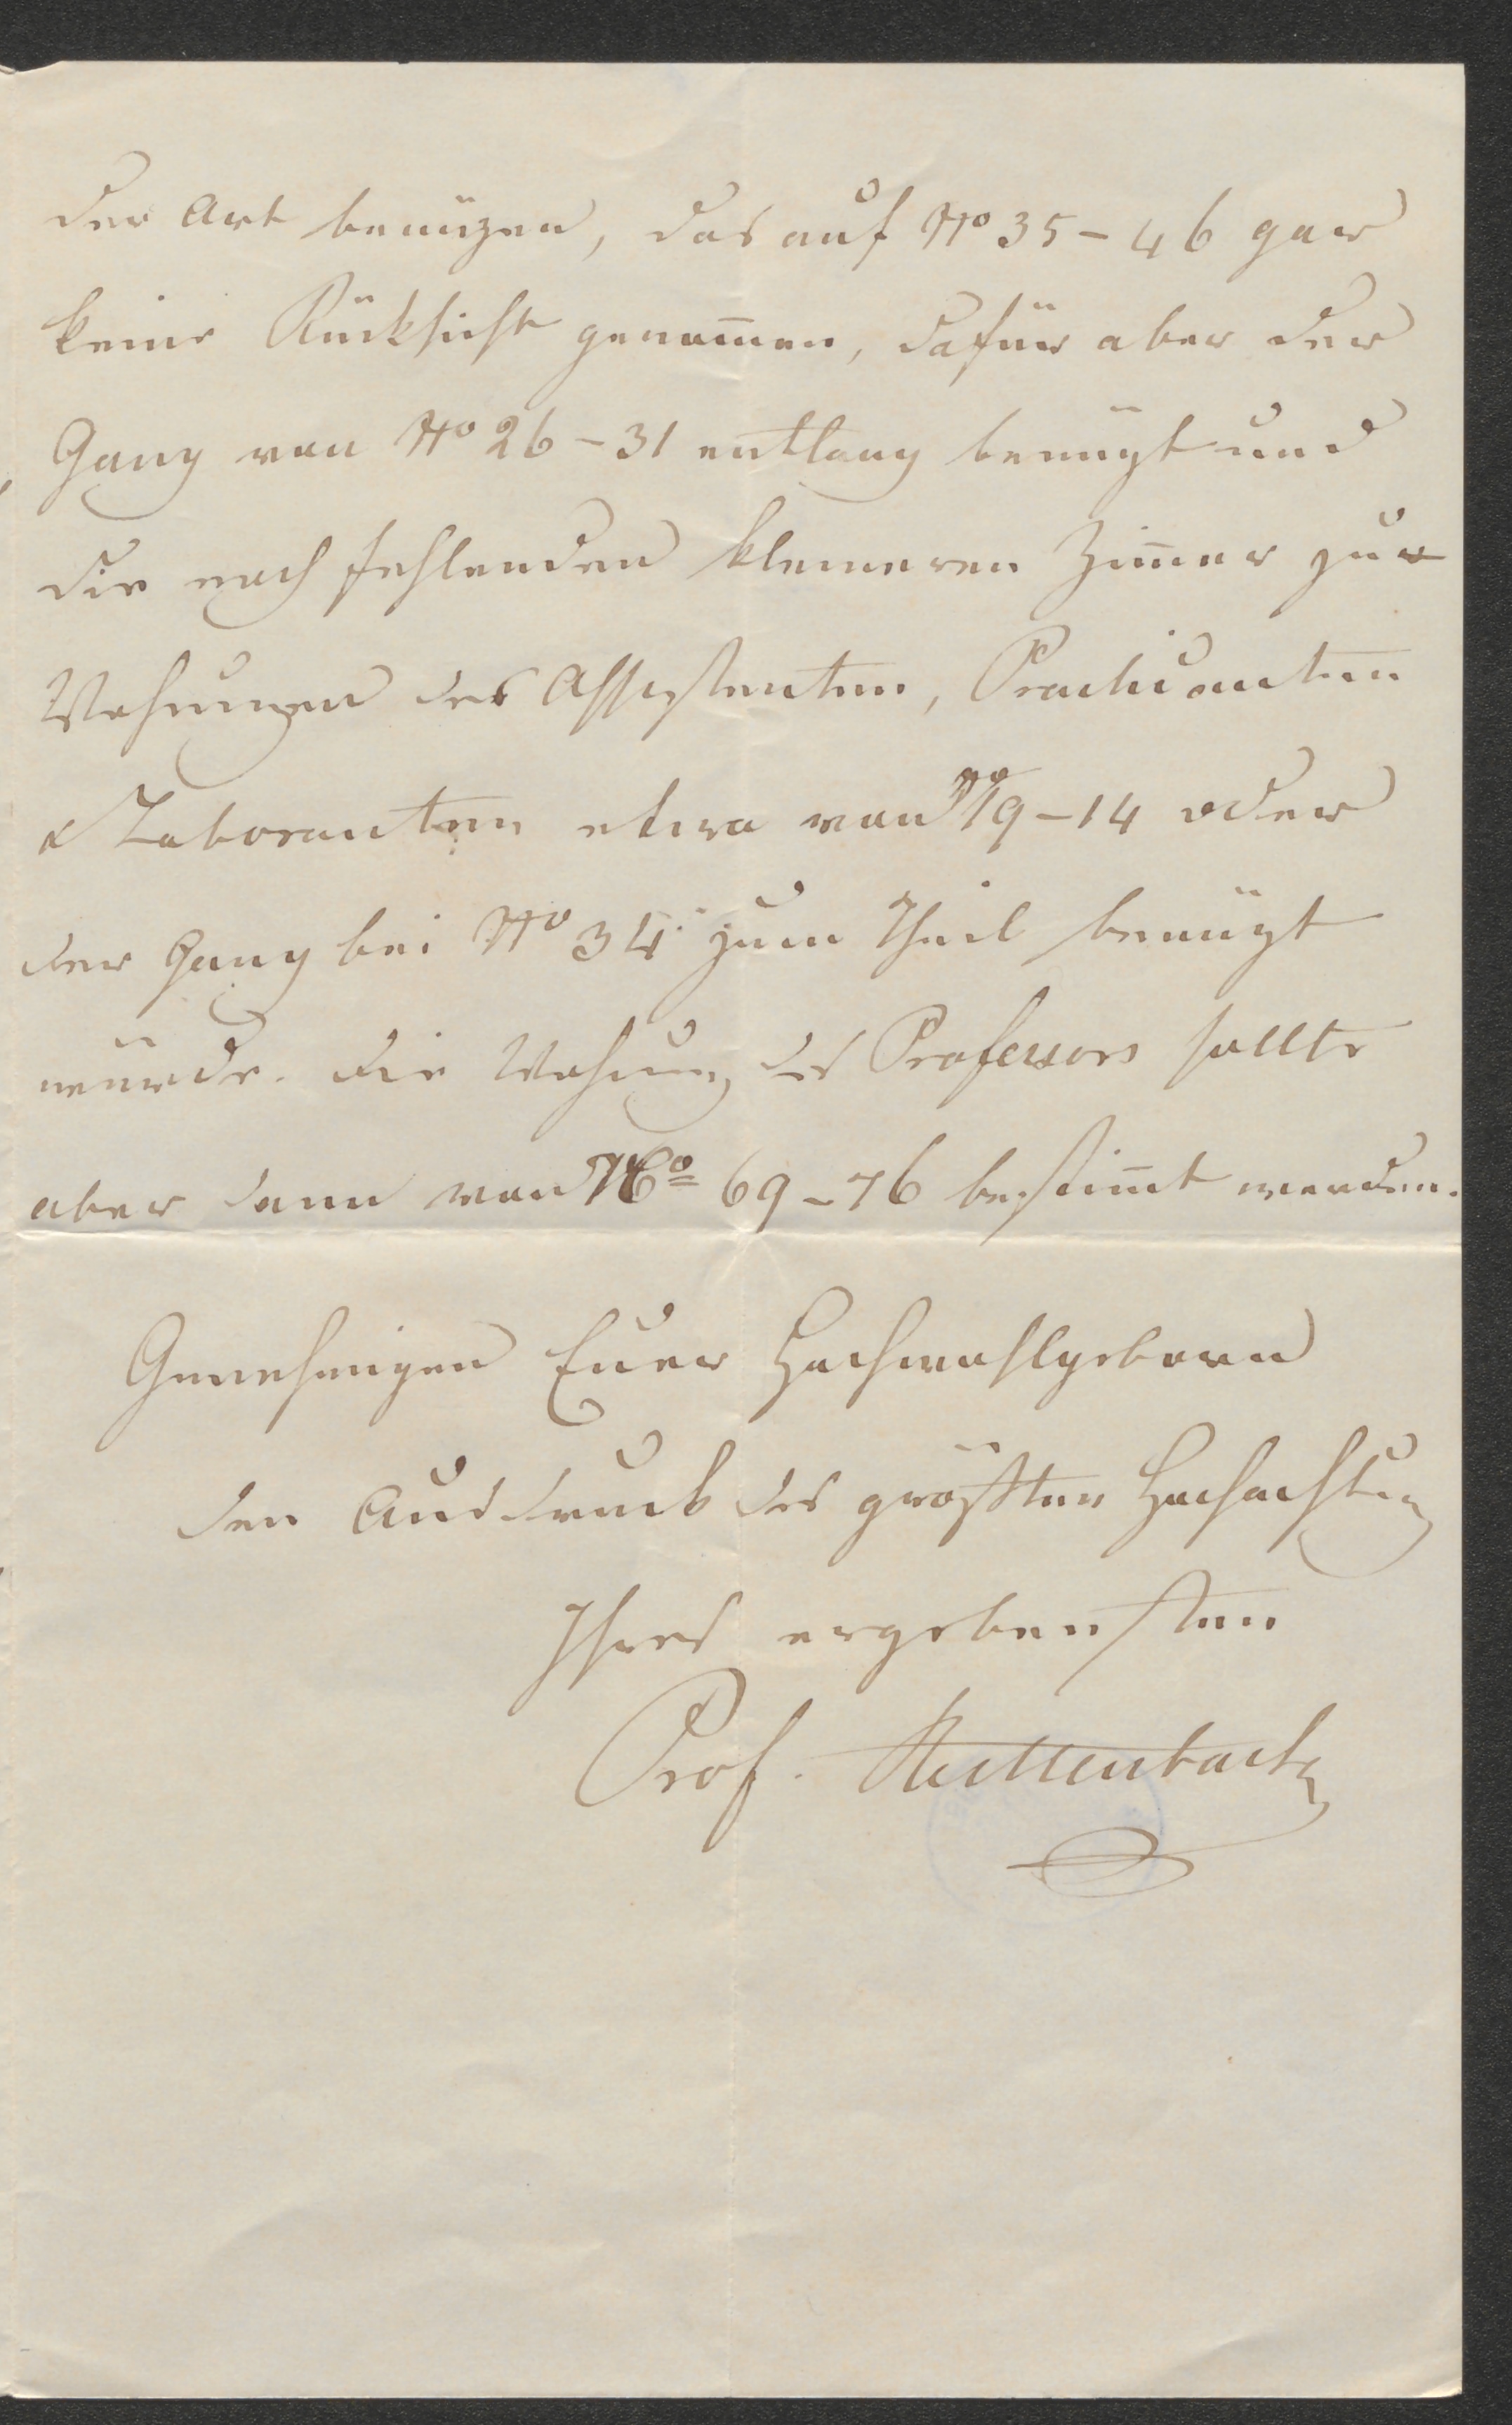 der Art benüzen, das auf No 35 – 46 gar
keine Rücksicht genom̄en, dafür aber der
Gang von No 26 – 31 entlang benüzt und
die noch fehlenden kleineren Zim̄er zur
Wohnungen des Assistenten, Practicanten
& Laboranten etwa von No 9 – 14 oder
der Gang bei No 34 zum Theil benüzt
würde. Die Wohnung des Professors sollte
aber dann von No 69 – 76 bestim̄t werden.
Genehmigen Euer Hochwohlgeboren
den Ausdruck der größten Hochachtung
Ihres ergebensten
Prof.